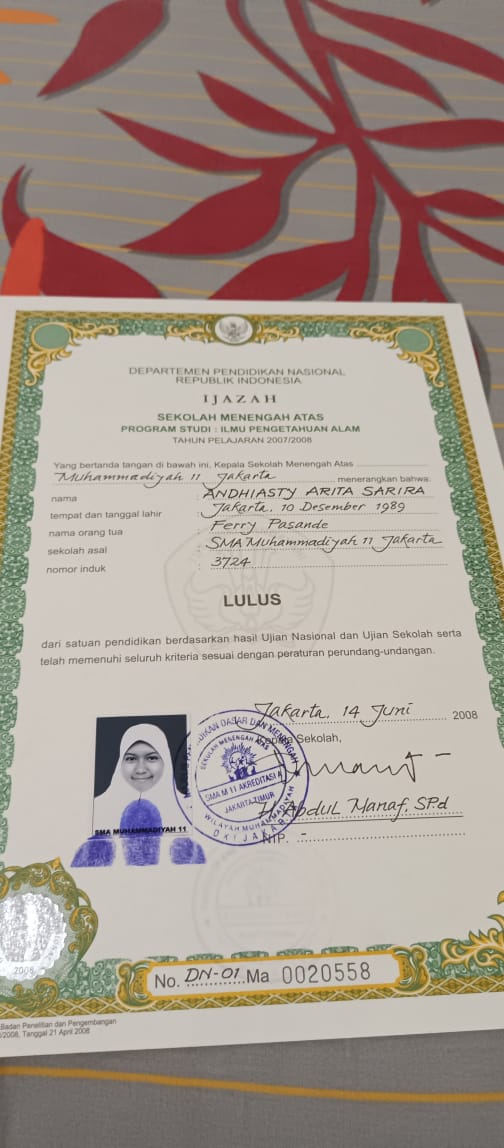 DEPARTEMEN PENDIDIKAN NASIONAL
REPUBLIK INDONESIA
IJAZAH
SEKOLAH MENENGAH ATAS
PROGRAM STUDI : ILMU PENGETAHUAN ALAM
TAHUN PELAJARAN 2007/2008
Yang bertanda tangan di bawah ini, Kepala Sekolah Menengah Atas
Muhammadiyah 11 Jakarta menerangkan bahwa:
nama : ANDHIASTY ARITA SARIRA
tempat dan tanggal lahir : Jakarta, 10 Desember 1989
nama orang tua : Ferry Pasande
sekolah asal : SMA Muhammadiyah 11 Jakarta
nomor induk : 3724
LULUS
dari satuan pendidikan berdasarkan hasil Ujian Nasional dan Ujian Sekolah serta
telah memenuhi seluruh kriteria sesuai dengan peraturan perundang-undangan.
Jakarta, 14 Juni 2008
Kepala Sekolah,
DASAR DAN MENENGAH
SEKOLAH MENENGAH ATAS
SMA M 11 AKREDITASI A
JAKARTA TIMUR
WILAYAH MUHAMMADIYAH
DKI JAKARTA
SMA MUHAMMADIYAH 11
H. Abdul Manaf, SPd
NIP. -
2008
No. DN-01 Ma 0020558
Badan Penelitian dan Pengembangan
/2008, Tanggal 21 April 2008